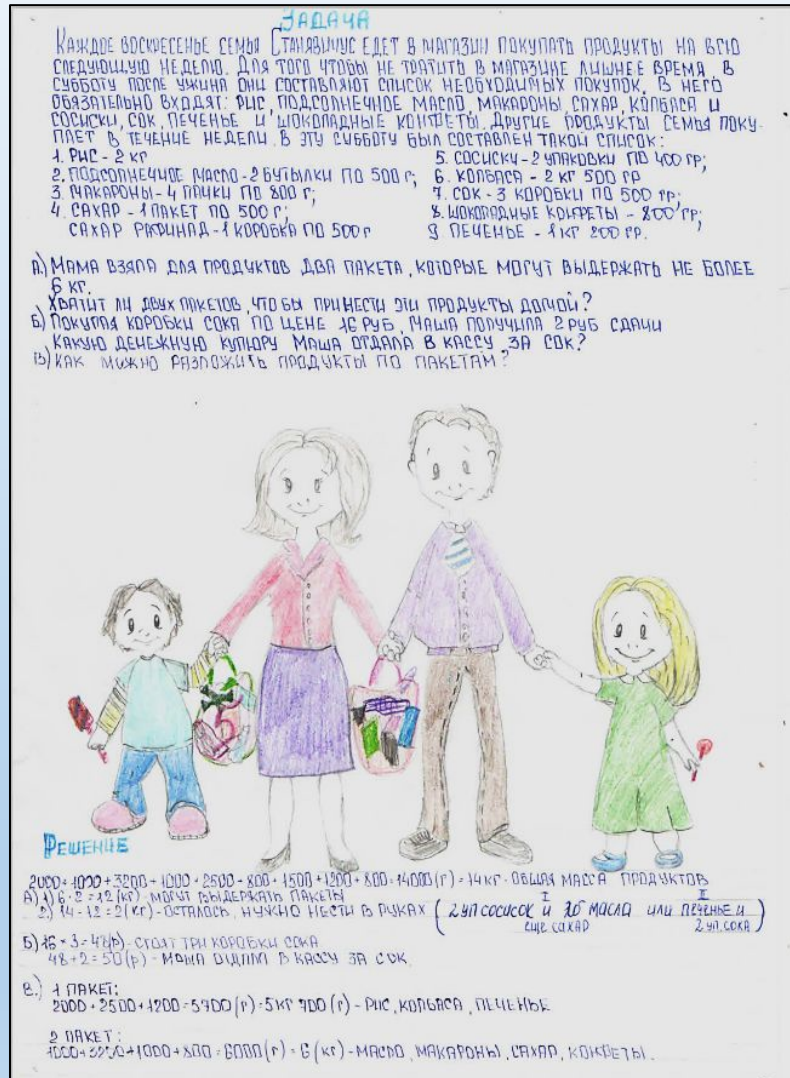 ЗАДАЧА
КАЖДОЕ ВОСКРЕСЕНЬЕ СЕМЬЯ СТАНЯВИЧУС ЕДЕТ В МАГАЗИН ПОКУПАТЬ ПРОДУКТЫ НА ВСЮ
СЛЕДУЮЩУЮ НЕДЕЛЮ. ДЛЯ ТОГО ЧТОБЫ НЕ ТРАТИТЬ В МАГАЗИНЕ ЛИШНЕЕ ВРЕМЯ, В
СУББОТУ ПОСЛЕ УЖИНА ОНИ СОСТАВЛЯЮТ СПИСОК НЕОБХОДИМЫХ ПОКУПОК. В НЕГО
ОБЯЗАТЕЛЬНО ВХОДЯТ: РИС, ПОДСОЛНЕЧНОЕ МАСЛО, МАКАРОНЫ, САХАР, КОЛБАСА И
СОСИСКИ, СОК, ПЕЧЕНЬЕ И ШОКОЛАДНЫЕ КОНФЕТЫ. ДРУГИЕ ПРОДУКТЫ СЕМЬЯ ПОКУ-
ПАЕТ В ТЕЧЕНИЕ НЕДЕЛИ. В ЭТУ СУББОТУ БЫЛ СОСТАВЛЕН ТАКОЙ СПИСОК:
1. РИС - 2 КГ
2. ПОДСОЛНЕЧНОЕ МАСЛО - 2 БУТЫЛКИ ПО 500 Г;
3. МАКАРОНЫ - 4 ПАЧКИ ПО 800 Г;
4. САХАР - 1 ПАКЕТ ПО 500 Г;
САХАР РАФИНАД - 1 КОРОБКА ПО 500 Г
5. СОСИСКИ - 2 УПАКОВКИ ПО 400 ГР;
6. КОЛБАСА - 2 КГ 500 ГР
7. СОК - 3 КОРОБКИ ПО 500 ГР;
8. ШОКОЛАДНЫЕ КОНФЕТЫ - 800 ГР;
9. ПЕЧЕНЬЕ - 1 КГ 200 ГР.
А) МАМА ВЗЯЛА ДЛЯ ПРОДУКТОВ ДВА ПАКЕТА, КОТОРЫЕ МОГУТ ВЫДЕРЖАТЬ НЕ БОЛЕЕ
6 КГ.
ХВАТИТ ЛИ ДВУХ ПАКЕТОВ, ЧТО БЫ ПРИНЕСТИ ЭТИ ПРОДУКТЫ ДОМОЙ?
Б) ПОКУПАЯ КОРОБКИ СОКА ПО ЦЕНЕ 16 РУБ, МАША ПОЛУЧИЛА 2 РУБ СДАЧИ
КАКУЮ ДЕНЕЖНУЮ КУПЮРУ МАША ОТДАЛА В КАССУ ЗА СОК?
В) КАК МОЖНО РАЗЛОЖИТЬ ПРОДУКТЫ ПО ПАКЕТАМ?
РЕШЕНИЕ
2000+1000+3200+1000+2500+800+1500+1200+800=14000(Г)=14КГ-ОБЩАЯ МАССА ПРОДУКТОВ
А) 1) 6·2=12(КГ)-МОГУТ ВЫДЕРЖАТЬ ПАКЕТЫ
2) 14-12=2(КГ)-ОСТАЛОСЬ, НУЖНО НЕСТИ В РУКАХ
I
(2 УП СОСИСОК И МАСЛА ИЛИ
ЕЩЕ САХАР
II
ПЕЧЕНЬЕ И
2 УП. СОКА)
Б) 16·3=48(Р)-СТОЯТ ТРИ КОРОБКИ СОКА
48+2=50(Р)-МАША ОТДАЛА В КАССУ ЗА СОК.
В.) 1 ПАКЕТ:
2000+2500+1200=5700(Г)=5КГ 700(Г)-РИС, КОЛБАСА, ПЕЧЕНЬЕ
2 ПАКЕТ:
1000+3200+1000+800=6000(Г)=6(КГ)-МАСЛО, МАКАРОНЫ, САХАР, КОНФЕТЫ.